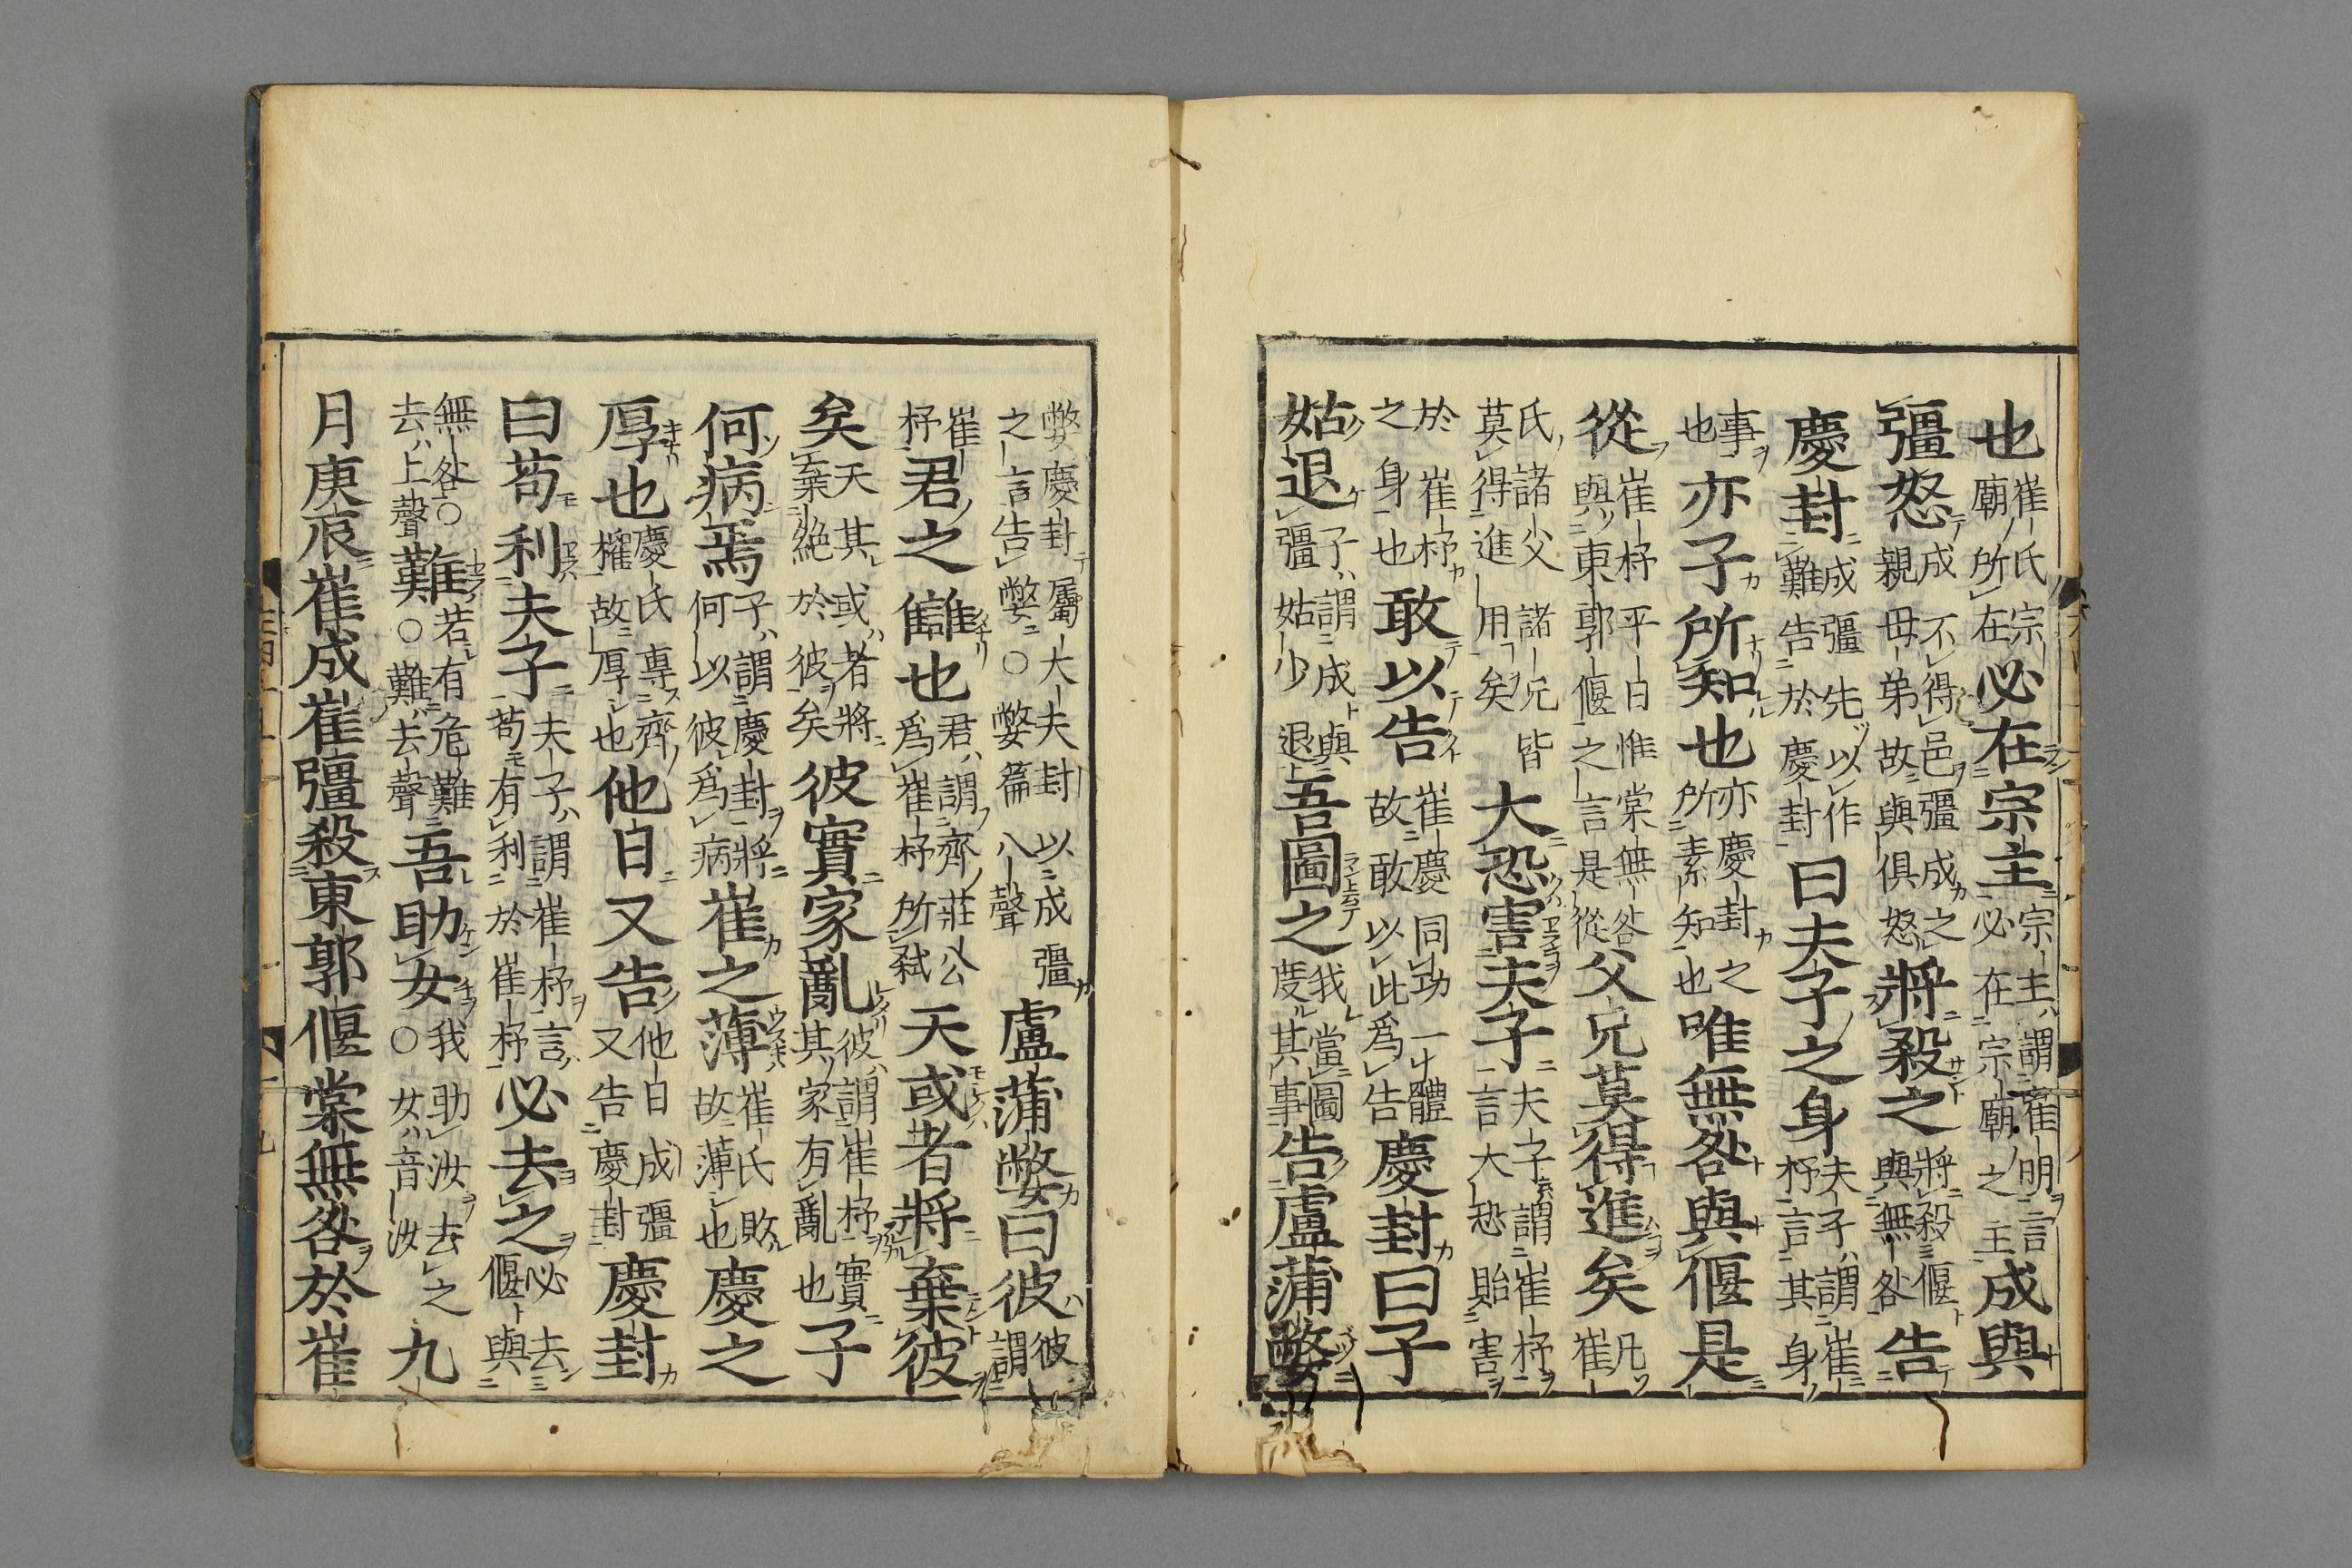 也崔氏宗廟所在必在宗主宗主謂崔明言必在宗廟之主成與
彊怒成不得邑彊成之親母弟故與俱怒將殺之將殺偃與無咎告
慶封成彊先以作難告於慶封曰夫子之身夫子謂崔杼言其身
事也亦子所知也亦慶封之所素知也唯無咎與偃是
從崔杼平日惟棠無咎與東郭偃之言是從父兄莫得進矣凡崔
氏諸父諸兄皆莫得進用矣大恐害夫子夫子謂崔杼言大恐貽害
於崔杼之身也敢以告崔慶同功一體故敢以此爲告慶封曰子
姑退子謂成與彊姑少退吾圖之我當圖度其事告盧蒲嫳
嫳慶封屬大夫封以成彊之言告嫳○嫳篇入聲盧蒲嫳曰彼彼謂
崔杼君之讎也君謂齊莊公爲崔杼所弒天或者將棄彼
矣天其或者將棄絕於彼矣彼實家亂彼謂崔杼實其家有亂也子
何病焉子謂慶封將何以彼爲病崔之薄崔氏敗故薄也慶之
厚也慶氏專齊權故厚也他日又告他日成彊又告慶封慶封
曰苟利夫子夫子謂崔杼言苟有利於崔杼必去之必去偃與
無咎○去上聲難若有危難○難去聲吾助女我助汝去之○女音汝九
月庚辰崔成崔彊殺東郭偃棠無咎於崔